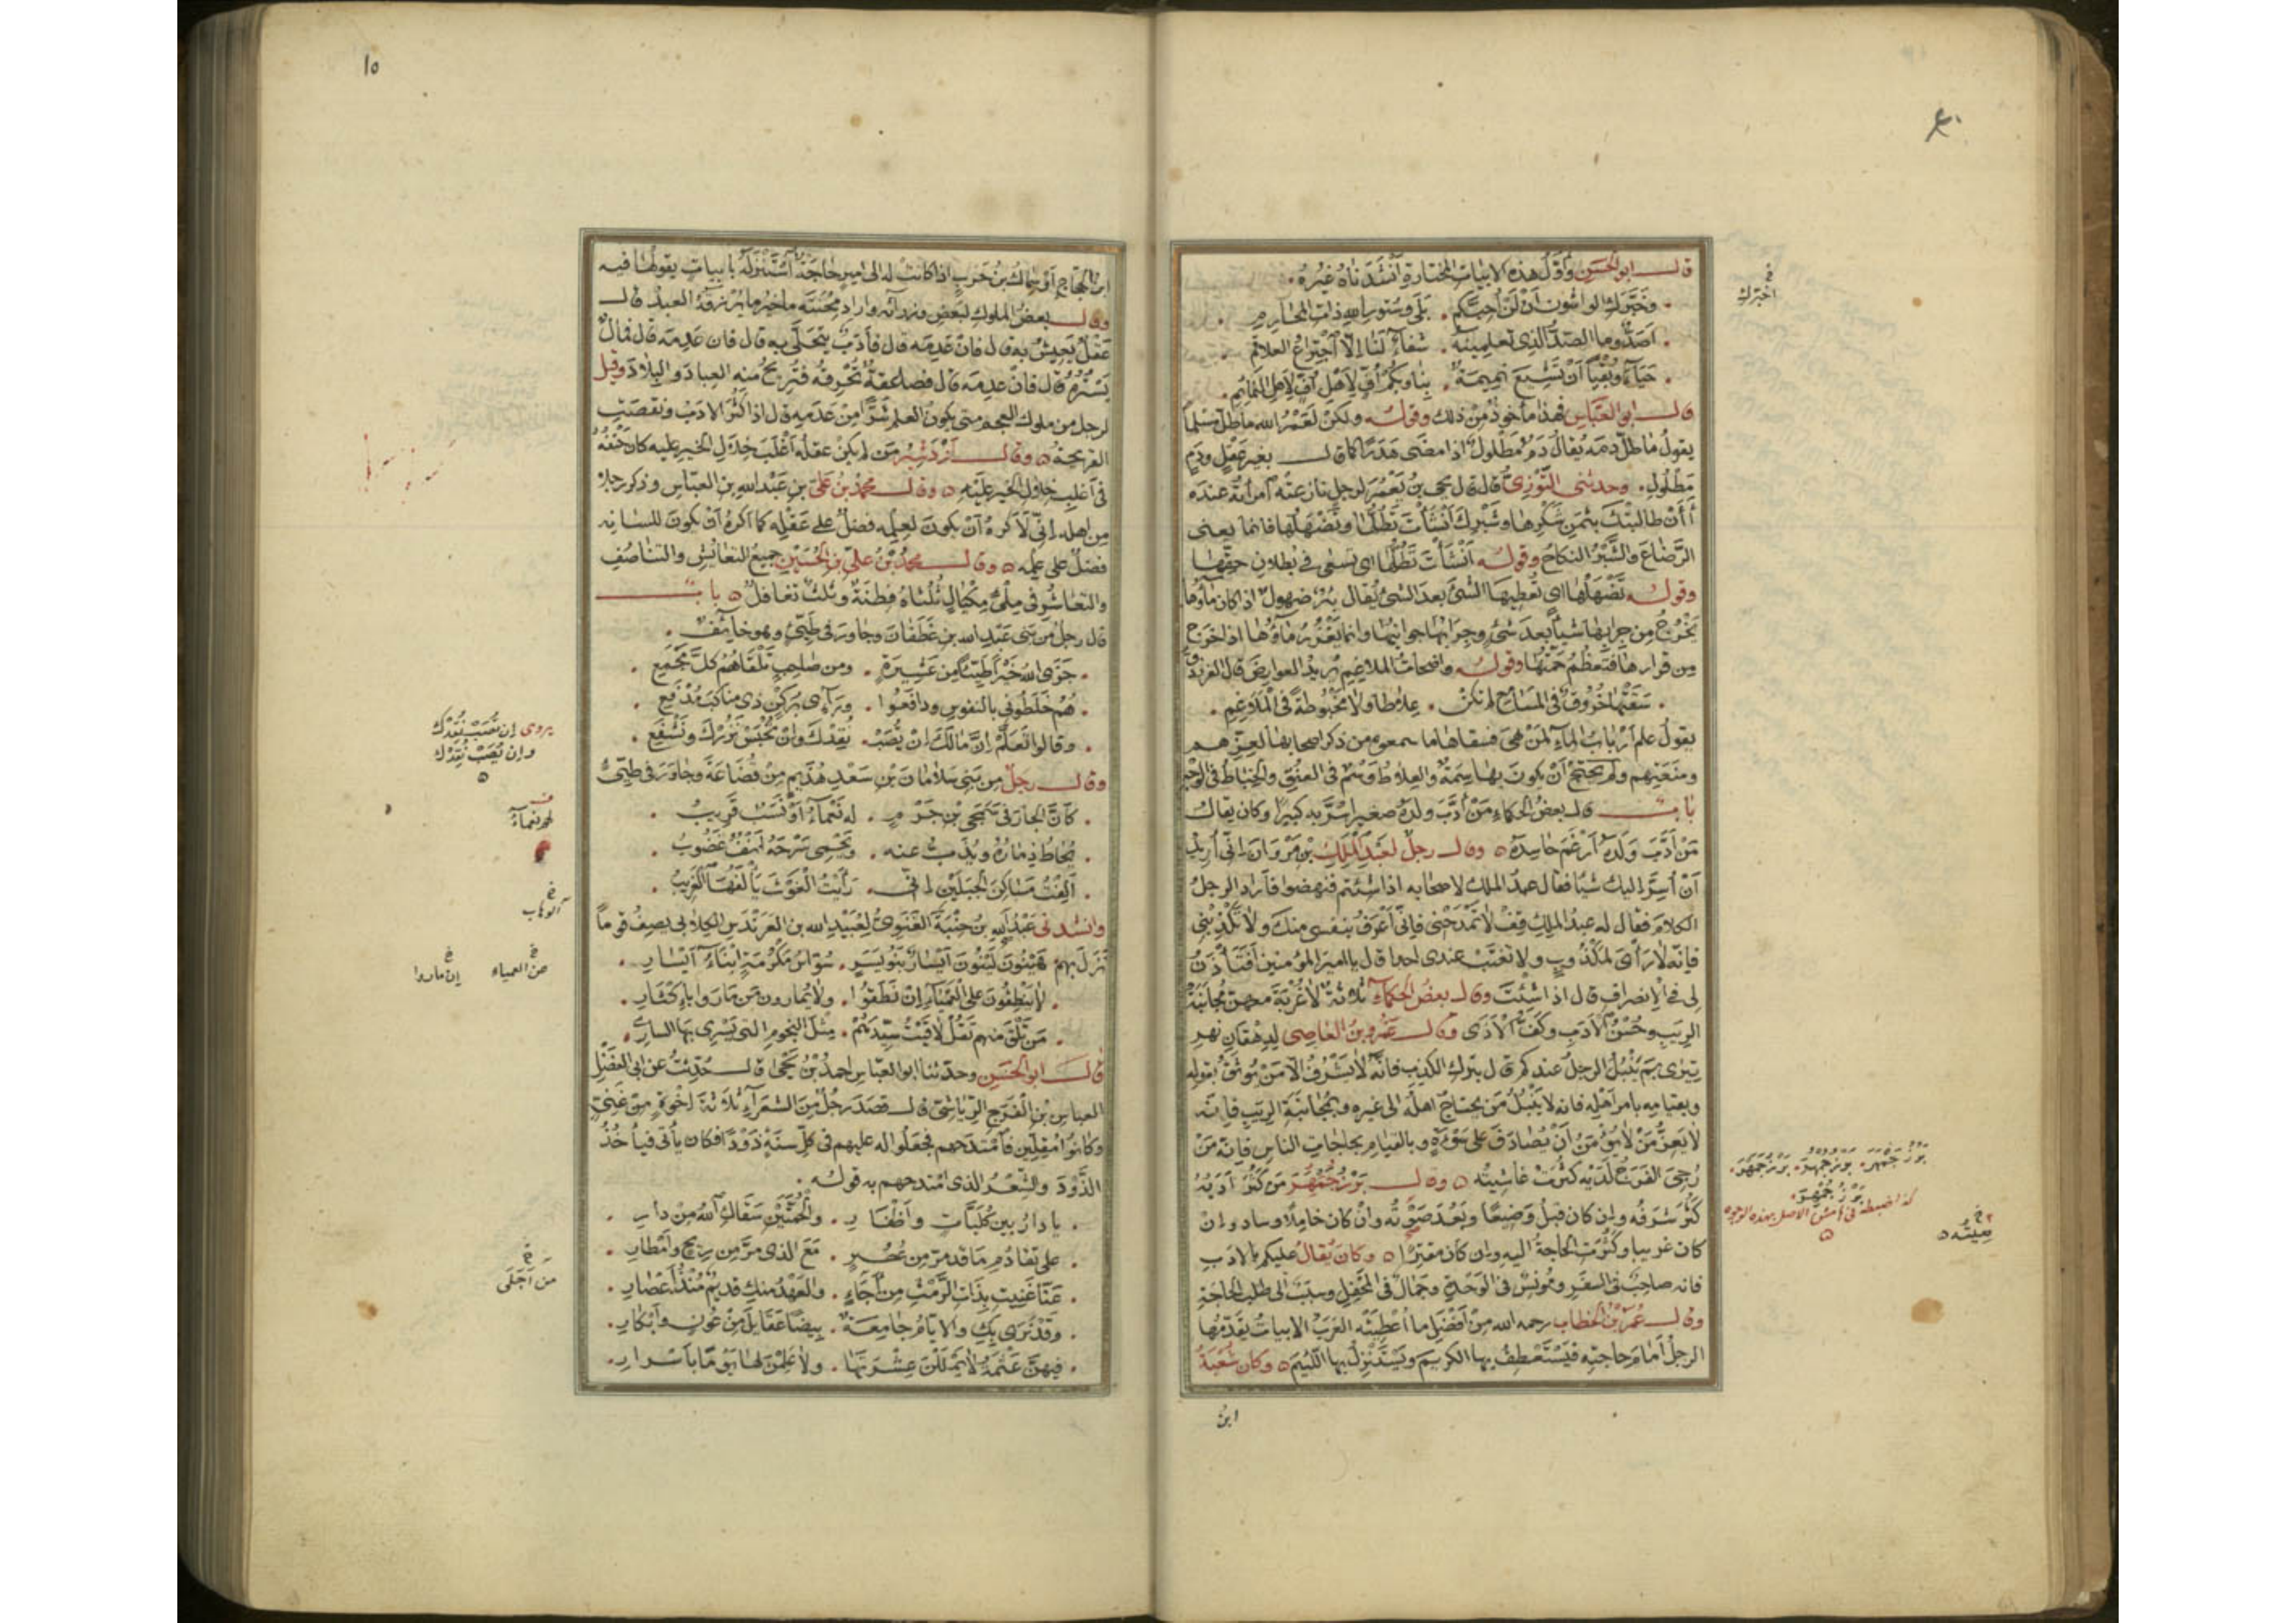 قال ابو الحسن وأول هذه الابيات المختارة أنشدناه غيره
وخبرك الواشون أن لن أحبكم بلى وستور الله ذات المحارم
أصد وما الصد الذى تعلمينه شفاء لنا إلا اجتراع العلاقم
حياء وبقيا أن تشيع نميمة بنا وبكم أف لأهل أف لاهل النمائم
قال ابو العباس فهذا مأخوذ من ذلك وقوله ولكن لعمر الله ما طل مسلما
يقول ما طل دمه يقال دم مطلول اذا مضى هدرا كما قال بغير عقل ودم
مطلول وحدثنى التوزى قال قال يحيى بن يعمر لرجل نازعته امرأته عنده
أأن طالبتك بثمن شكرها وشبرك أنشأت تطلها وتضهلها فانما يعنى
الرضاع والشبر النكاح وقوله أنشأت تطلها اى تسعى فى بطلان حقها
وقوله تضهلها اى تعطيها الشئ بعد الشئ يقال بئر ضهول اذا كان ماؤها
يخرج من جرابها شيأ بعد شئ وجرابها جوانبها وانما يغزر ماؤها اذا خرج
من قرارها فتعظم جمتها وقوله واضحات الملاغم يريد العوارض قال الفرزدق
سقتها خروق فى المسامع لم تكن علاطا ولا مخبوطة فى الملاغم
يقول علم أرباب الماء لمن هى فسقاها ما سمعوه من ذكر اصحابها لعزهم
ومنعتهم ولم يحتج أن يكون بها سمة والعلاط وسم فى العنق والخباط فى الوجه
باب قال بعض الحكماء من أدب ولده صغيرا سر به كبيرا وكان يقال
من أدب ولده أرغم حاسده وقال رجل لعبد الملك بن مروان انى أريد
أن أسر اليك شيأ فقال عبد الملك لاصحابه اذا شئتم فنهضوا فأراد الرجل
الكلام فقال له عبد الملك قف لا تمدحنى فانى أعرف بنفسى منك ولا تكذبنى
فإنه لا رأى لمكذوب ولا تغتب عندى احدا قال يا امير المؤمنين أفتأذن
لى فى الانصراف قال اذا شئت وقال بعض الحكماء ثلاثة لا غربة معهن مجانبة
الريب وحسن الأدب وكف الأذى وقال عمرو بن العاصى لدهقان نهر
تيرى بم ينبل الرجل عندكم قال بترك الكذب فانه لا يشرف الا من يوثق بقوله
وبقيامه بامر أهله فانه لا ينبل من يحتاج اهله الى غيره وبمجانبة الريب فانه
لا يعز من لا يؤمن أن يصادف على سوءة وبالقيام بحاجات الناس فإنه من
رجى الفرج لديه كثرت غاشيته وقال بزرجمهر من كثر أدبه
كثر شرفه وإن كان قبل وضيعا وبعد صوته وان كان خاملا وساد وان
كان غريبا وكثرت الحاجة اليه وان كان مقترا وكان يقال عليكم بالادب
فانه صاحب فى السفر ومونس فى الوحدة وجمال فى المحفل وسبب الى طلب الحاجة
وقال عمر بن الخطاب رحمه الله من أفضل ما أعطيته العرب الابيات يقدمها
الرجل أمام حاجته فيستعطف بها الكريم ويستنزل بها اللئيم وكان شعبة
ابن
خ
اخبرك
بزرجمهر بزرجمهر بزرجمهر
بزرجمهر
كذا ضبطه فى هامش الاصل بهذه الوجوه
خ
١٥
ابن الحجاج أو سماك بن حرب اذا كانت له الى امير حاجة استنزله بابيات يقولها فيه
وقال بعض الملوك لبعض وزرائه واراد محنته ما خير ما يرزقه العبد قال
عقل يعيش به قال فان عدمه قال فأدب يتحلى به قال فان عدمه قال فمال
يستره قال فان عدمه قال فصاعقة تحرقه فتريح منه العباد والبلاد وقيل
لرجل من ملوك العجم متى يكون العلم شرا من عدمه قال اذا كثر الادب ونقصت
القريحة وقال أزدشير من لم يكن عقله أغلب خلال الخير عليه كان حتفه
فى أغلب خلال الخير عليه وقال محمد بن على بن عبد الله بن العباس وذكر رجلا
من اهله إنى لأكره أن يكون لعلمه فضل على عقله كما اكره أن يكون للسانه
فضل على علمه وقال محمد بن على بن الحسين جميع التعايش والتناصف
والتعاشر فى ملئ مكيال ثلثاه فطنة وثلث تغافل باب
قال رجل من بنى عبد الله بن غطفان وجاور فى طيئ وهو خائف
جزى الله خيرا طيئا من عشيرة ومن صاحب تلقاهم كل مجمع
هم خلطونى بالنفوس ودافعوا ورآءى بركن ذى مناكب مدفع
وقالوا تعلم ان مالك ان يصب نفدك وان تحبس نزرك ونشفع
وقال رجل من بنى سلامان بن سعد هذيم من قضاعة وجاور فى طيئ
كأن الجار فى شمجى بن جرم له نعماء أو نسب قريب
يحاط ذماره ويذب عنه ويحمى سرحه أنف غضوب
ألفت مساكن الجبلين انى رأيت الغوث يألفها الغريب
وانشدنى عبد الله بن جنبة الغنوى لعبيد الله بن العرندس الكلابى يصف قوما
نزل بهم هينون لينون أيسار بنو يسر سواس مكرمة ابناء أيسار
لا ينطقون على العمياء إن نطقوا ولا يمارون من ماروا بإكثار
من تلق منهم تقل لاقيت سيدهم مثل النجوم التى يسرى بها السارى
قال ابو الحسن وحدثنا ابو العباس احمد بن يحيى قال حدثت عن ابى الفضل
العباس بن الفرج الرياشى قال قصد رجل من الشعرآء ثلاثة اخوة من غنى
وكانوا مقلين فامتدحهم فجعلوا له عليهم فى كل سنة ذودا فكان يأتى فيأخذ
الذود والشعر الذى امتدحهم به قوله
يا دار بين كليات وأظفار والحمتين سقاك الله من دار
على تقادم ما قد مر من عصر مع الذى مر من ريح وأمطار
عنا غنيت بذات الرمث من أجاء والعهد منك قديم منذ أعصار
وقد نرى بك والايام جامعة بيضا عقائل من عون وأبكار
فيهن عثمة لا يمللن عشرتها ولا علمن لها يوما بأسرار
يروى إن تصب نفدك
وإن تصب نفدك
لهم نعماء
خ
خ
من العمياء
خ
إن ماروا
خ
من أجلى